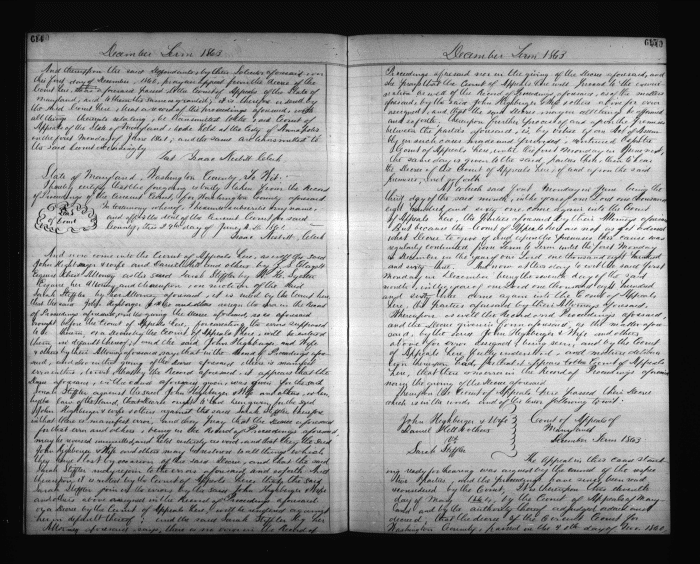 December Term 1863
And thereupon the said Defendants by their Solicitor aforesaid on
the first day of December 1860, pray an appeal from the decree of the
Court here, in aforesaid passed to the Court of Appeals of the State of
Maryland, and to them the same is granted; it is therefore ordered by
the said Court here that a record of the proceedings aforesaid, with
all things thereunto relating, be transmitted to the said Court of
Appeals of the State of Maryland, to be held at the City of Annapolis
on the first Monday of June 1861; and the same are transmitted to
the said Court accordingly
Test Isaac Nesbitt Clerk
State of Maryland, Washington County, to Wit:
I hereby certify that the foregoing is truly taken from the Record
of Proceedings of the Circuit Court for Washington County aforesaid
In testimony whereof I hereunto subscribe my name,
and affix the seal of the Circuit Court for said
County, this 29th day of June, A.D. 1861.
Seal of Court
Isaac Nesbitt, Clerk
And now come into the Court of Appeals here, as well the said
John Highbarger & wife and Daniel Stitt and others by
Esquire their Attorney as the said Sarah Stiffler by
Esquire, her Attorney, and thereupon on motion of the said
Sarah Stiffler by her Attorney aforesaid, it is ruled by the Court here,
that the said John Highbarger & wife and others assign the error in the Record
of Proceedings aforesaid, or in the giving the decree aforesaid, so as aforesaid
brought before the Court of Appeals here,
and the said John Highbarger and Wife
& others by their Attorney aforesaid say, that in the Record & Proceedings afore-
said, and also in the giving of the decree aforesaid, there is manifest
error in this, to wit, that by the Record aforesaid it appears that the
was given for the said
Sarah Stiffler against the said John Highbarger & Wife and others, when
by the Law of the Land, that decree ought to have been given for the said
John Highbarger & wife & others against the said Sarah Stiffler therefore
in that there is manifest error, and they pray that the decree aforesaid
for that error and others, being in the Record of Proceedings aforesaid
may be reversed annulled and held entirely as void, and that they the said
John Highbarger & Wife and others may be restored to all things to which
they have lost by occasion of the said decree, and that the said
Sarah Stiffler may rejoin to the errors aforesaid and so forth. And
thereupon it is ruled by the Court of Appeals here, that the said
Sarah Stiffler join in the errors by the said John Highbarger & Wife
and others above assigned in the Record of Proceedings aforesaid
or a decree by the Court of Appeals here, will be rendered against
her in default thereof; and the said Sarah Stiffler by her
Attorney aforesaid says, there is no error in the Record of
December Term 1863
Proceedings aforesaid nor in the giving of the decree aforesaid, and
she prays that the Court of Appeals here may proceed to the exami-
nation as well of the Record & Proceedings aforesaid, as of the matters
aforesaid, by the said John Highbarger & Wife & others above for error
assigned, and that the said decree may in all things be affirmed
and so forth. Whereupon further process of and upon the premises
between the parties aforesaid, is by virtue of an Act of Assem-
bly in such cases made and provided, continued before the
Court of Appeals here, until the first Monday in June next,
the same day is given to the said parties then, then to hear
the decree of the Court of Appeals here, of and upon the said
premises; and so forth.
At which said first Monday in June being the
third day of the said month, in the year of our Lord one thousand
eight hundred and sixty one come again into the Court
of Appeals here, the Parties aforesaid by their Attorneys aforesaid
But because the Court of Appeals here are not as yet advised
what decree to give of and upon the premises, this cause was
regularly continued from term to term until the first Monday
in December in the year of our Lord one thousand eight hundred
and sixty three. And now at this day to wit the said first
Monday in December being the seventh day of the said
month, in the year of our Lord one thousand eight hundred
and sixty three come again into the Court of Appeals
here, the Parties aforesaid by their Attorneys aforesaid.
Whereupon as well the Record and Proceedings aforesaid,
and the decree given in form aforesaid, as the matters afore-
said, by the said John Highbarger & Wife and others
above for error assigned, being seen, and by the Court
of Appeals here fully understood, and mature delibera-
tion thereupon had; for that it appears to the Court of Appeals
here, that there is no error in the Record of Proceedings aforesaid
nor in the giving of the decree aforesaid.
Thereupon the Court of Appeals here passed their Decree
which is in the words and of the tenor following to wit:
John Highbarger & Wife
Daniel Stitt & others
vs
Sarah Stiffler
Court of Appeals of
Maryland
December Term 1863
The Appeal in this cause stand-
ing ready for hearing was argued by the counsel of the respec-
tive parties, and the proceedings have since been
considered by the Court. It is thereupon this eleventh
day of May 1864, by the Court of Appeals of Mary-
land and by the authority thereof adjudged ordered and
decreed, that the decree of the Circuit Court for
Washington County, passed on the 20th day of Nov. 1860,